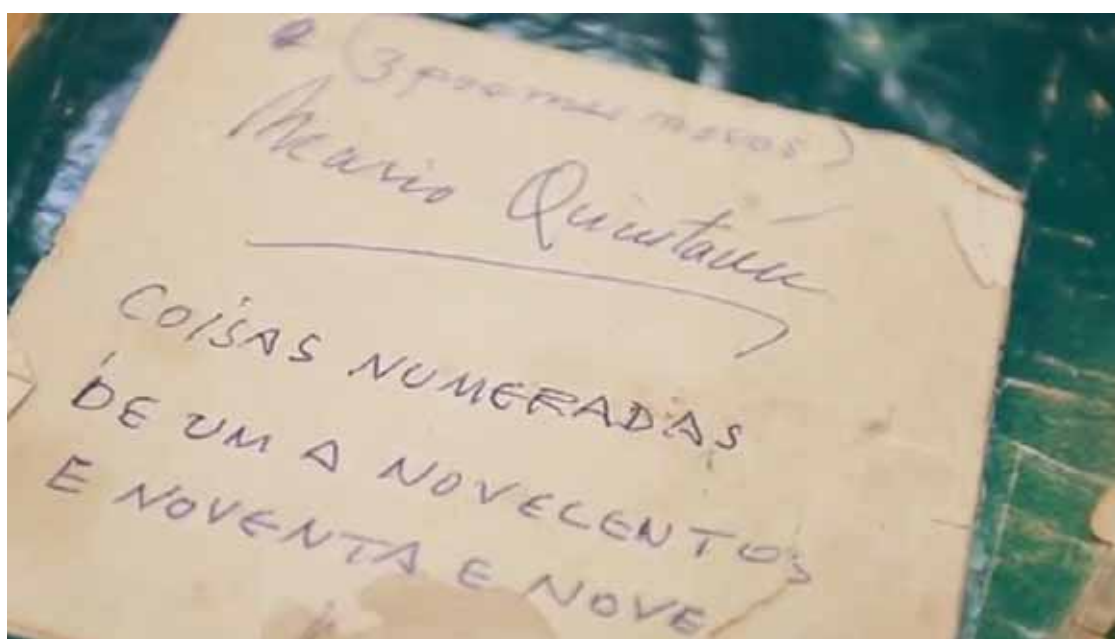 (3 poemas novos)
Mario Quintana
COISAS NUMERADAS
DE UM A NOVECENTOS
E NOVENTA E NOVE